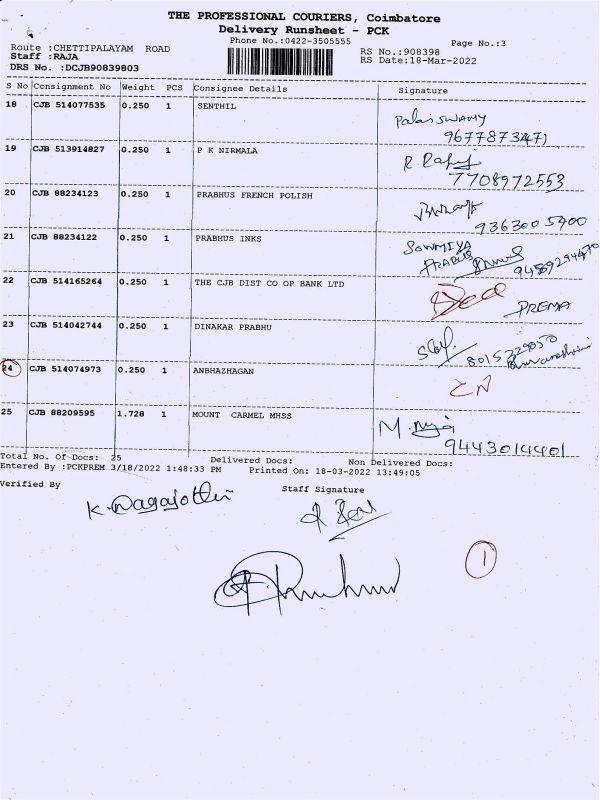 THE PROFESSIONAL COURIERS, Coimbatore
Delivery Runsheet - PCK
Phone No.:0422-3505555
Page No.:3
Route :CHETTIPALAYAM ROAD
RS No.:908398
Staff :RAJA
RS Date:18-Mar-2022
DRS No. :DCJB90839803
S No Consignment No Weight PCS Consignee Details Signature
18 CJB 514077535 0.250 1 SENTHIL
PalaiSWAMY
9677873471
19 CJB 513914827 0.250 1 P K NIRMALA
R.
7708972553
20 CJB 88234123 0.250 1 PRABHUS FRENCH POLISH
9363005400
21 CJB 88234122 0.250 1 PRABHUS INKS
SOWMIYA
PRABUS
9489294470
22 CJB 514165264 0.250 1 THE CJB DIST CO OP BANK LTD
PREMA
23 CJB 514042744 0.250 1 DINAKAR PRABHU
8015329050
Bhuvaneshwari
24 CJB 514074973 0.250 1 ANBHAZHAGAN
25 CJB 88209595 1.728 1 MOUNT CARMEL MHSS
M.
9443014401
Total No. Of Docs: 25 Delivered Docs: Non Delivered Docs:
Entered By :PCKPREM 3/18/2022 1:48:33 PM Printed On: 18-03-2022 13:49:05
Verified By
Staff Signature
K. Nagajothi
1